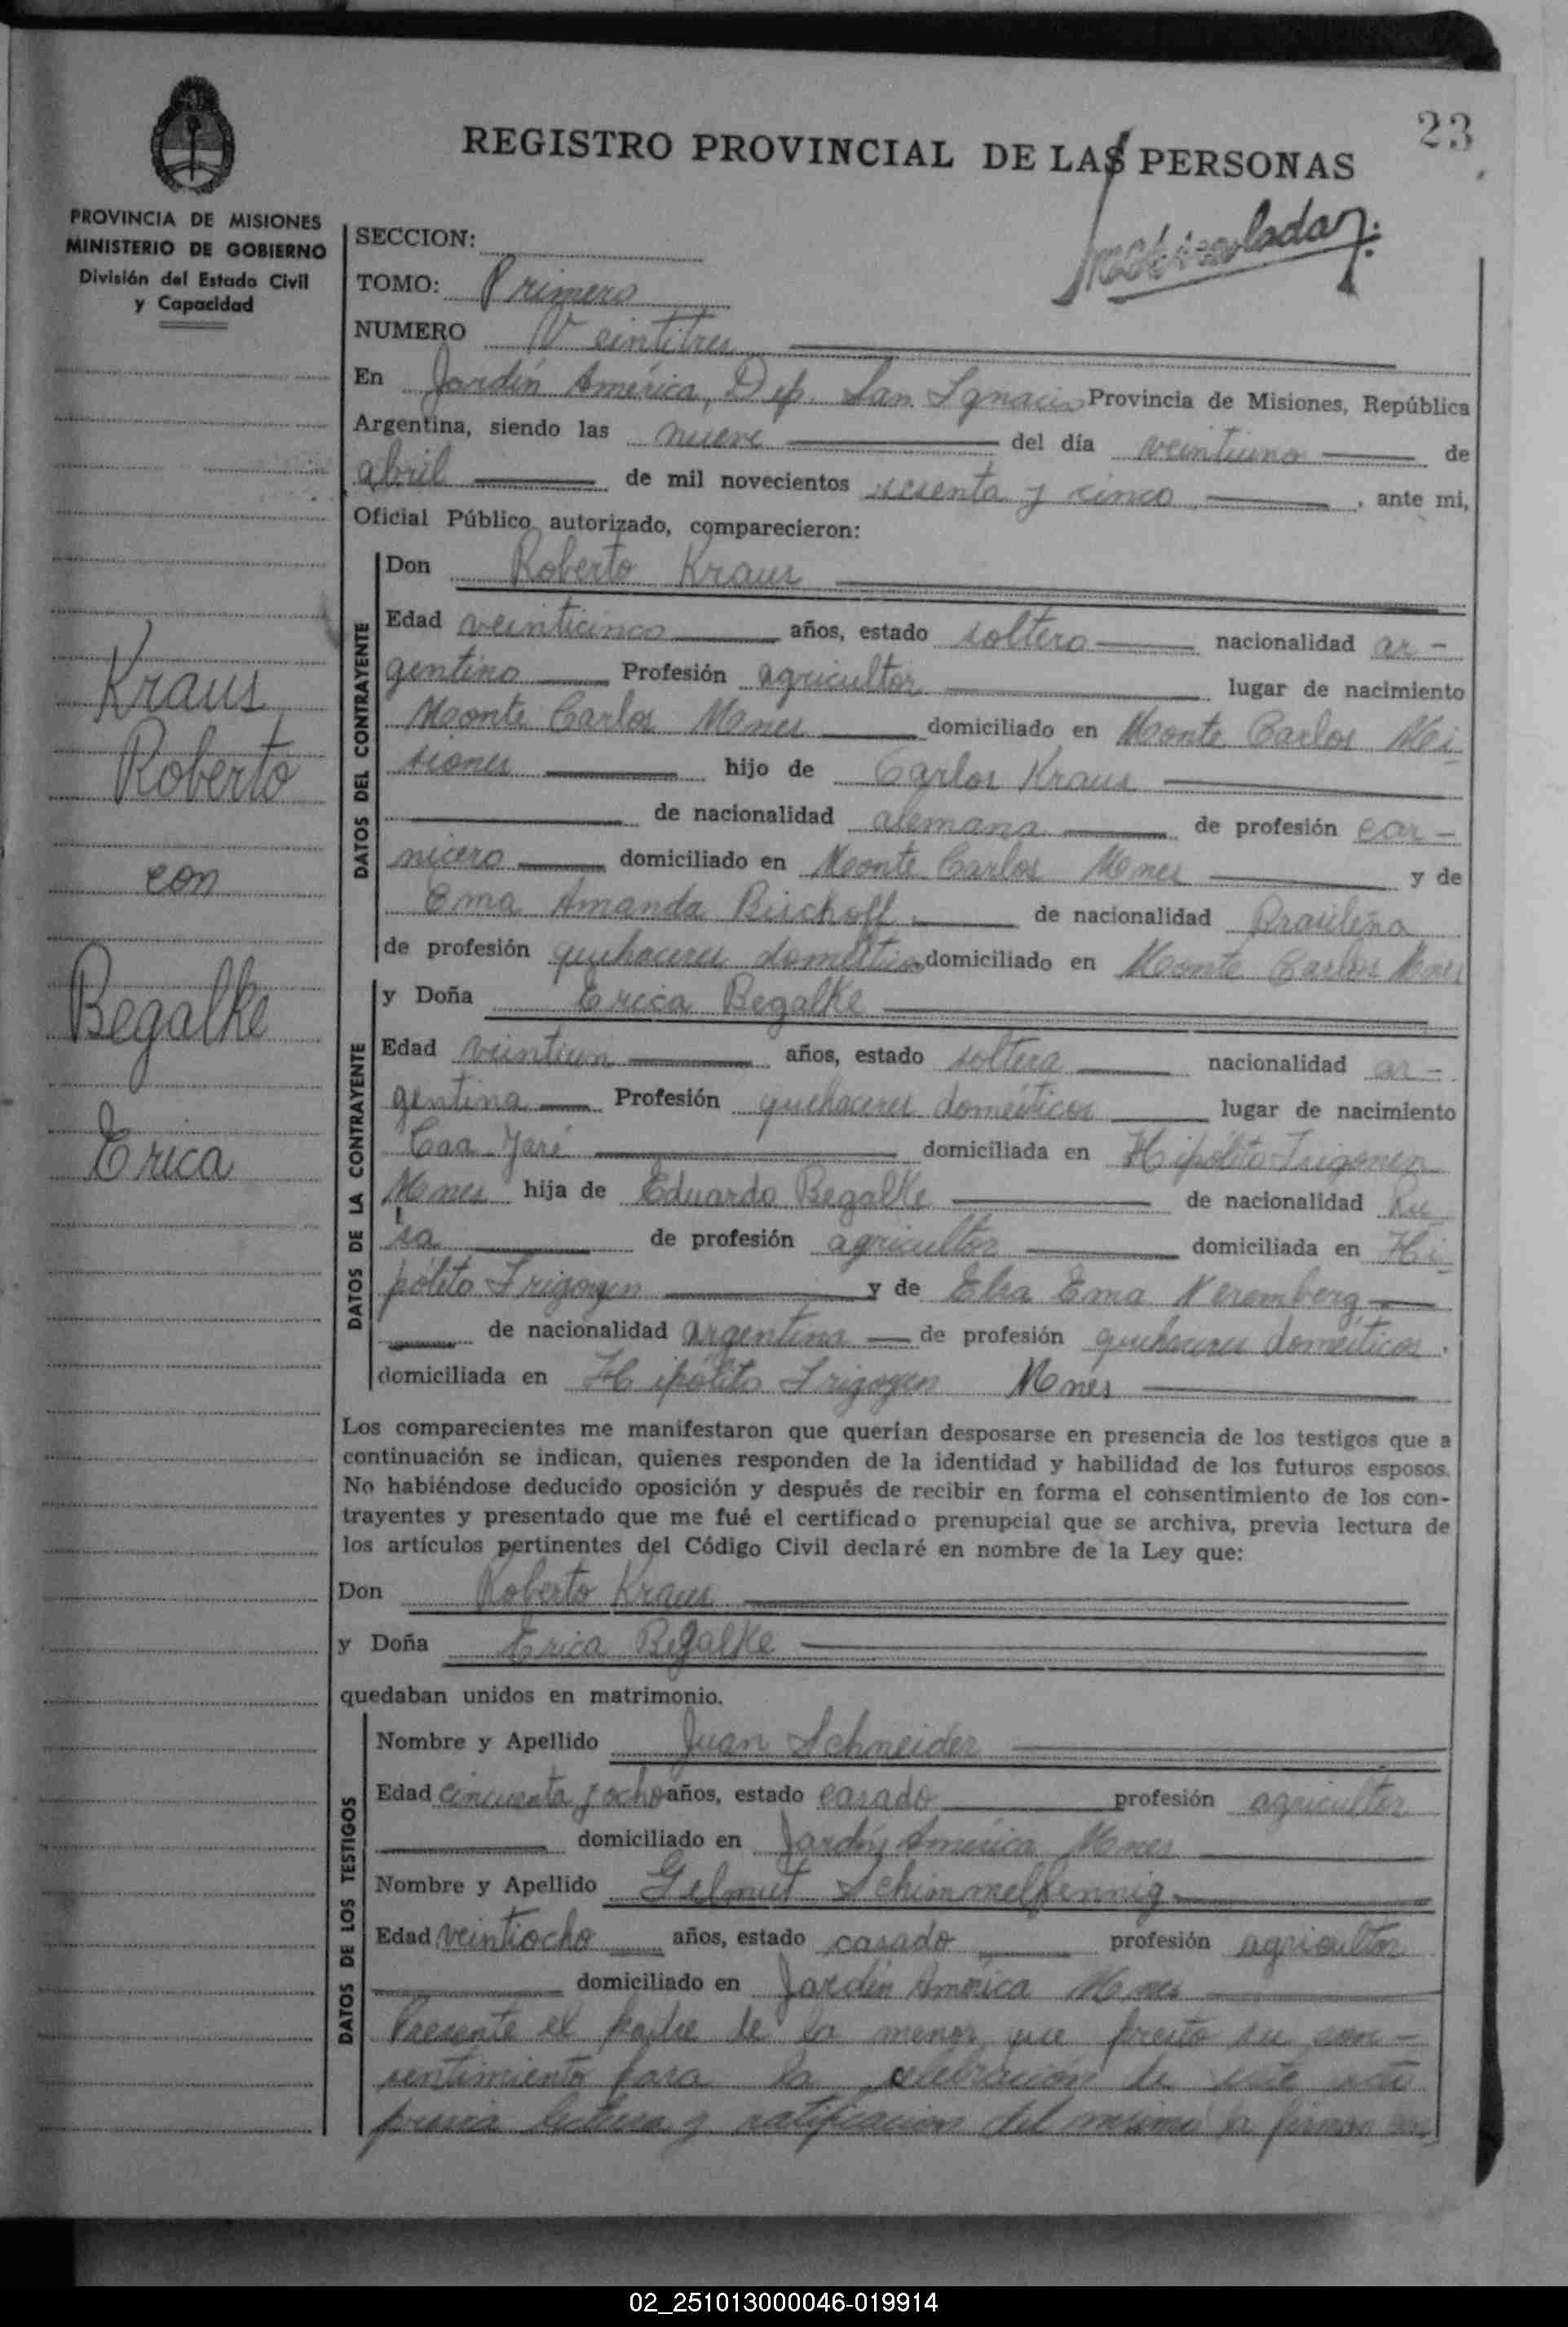 23
REGISTRO PROVINCIAL DE LAS PERSONAS
PROVINCIA DE MISIONES
MINISTERIO DE GOBIERNO
División del Estado Civil
y Capacidad
SECCION:
TOMO: Primero
NUMERO Veintitres
En Jardín América, Dep. San Ignacio Provincia de Misiones, República
Argentina, siendo las nueve del día veintiuno de
abril de mil novecientos sesenta y cinco, ante mi,
Oficial Público autorizado, comparecieron:
Kraus
Roberto
con
Begalke
Erica
DATOS DEL CONTRAYENTE
Don Roberto Kraus
Edad veinticinco años, estado soltero nacionalidad ar-
gentino Profesión agricultor lugar de nacimiento
Monte Carlos Mnes domiciliado en Monte Carlos Mi-
siones hijo de Carlos Kraus
de nacionalidad alemana de profesión car-
nicero domiciliado en Monte Carlos Mnes y de
Ema Amanda Bischoff de nacionalidad Brasileña
de profesión quehaceres domésticos domiciliado en Monte Carlos Mnes
DATOS DE LA CONTRAYENTE
y Doña Erica Begalke
Edad veintiun años, estado soltera nacionalidad ar-
gentina Profesión quehaceres domésticos lugar de nacimiento
Caa-Yarí domiciliada en Hipólito Irigoyen
Mnes hija de Eduardo Begalke de nacionalidad Ru-
sa de profesión agricultor domiciliada en Hi-
pólito Irigoyen y de Elsa Ema Neremberg
de nacionalidad argentina de profesión quehaceres domésticos.
domiciliada en Hipólito Irigoyen Mnes
Los comparecientes me manifestaron que querían desposarse en presencia de los testigos que a
continuación se indican, quienes responden de la identidad y habilidad de los futuros esposos.
No habiéndose deducido oposición y después de recibir en forma el consentimiento de los con-
trayentes y presentado que me fué el certificado prenupcial que se archiva, previa lectura de
los artículos pertinentes del Código Civil declaré en nombre de la Ley que:
Don Roberto Kraus
y Doña Erica Begalke
quedaban unidos en matrimonio.
DATOS DE LOS TESTIGOS
Nombre y Apellido Juan Schneider
Edad cincuenta y ocho años, estado casado profesión agricultor
domiciliado en Jardín América Mnes
Nombre y Apellido Gelmut Schimmelfennig
Edad veintiocho años, estado casado profesión agricultor
domiciliado en Jardín América Mnes
Presente el padre de la menor que presto su con-
sentimiento para la celebración de este acto
previa lectura y ratificacion del mismo la firman
02_251013000046-019914